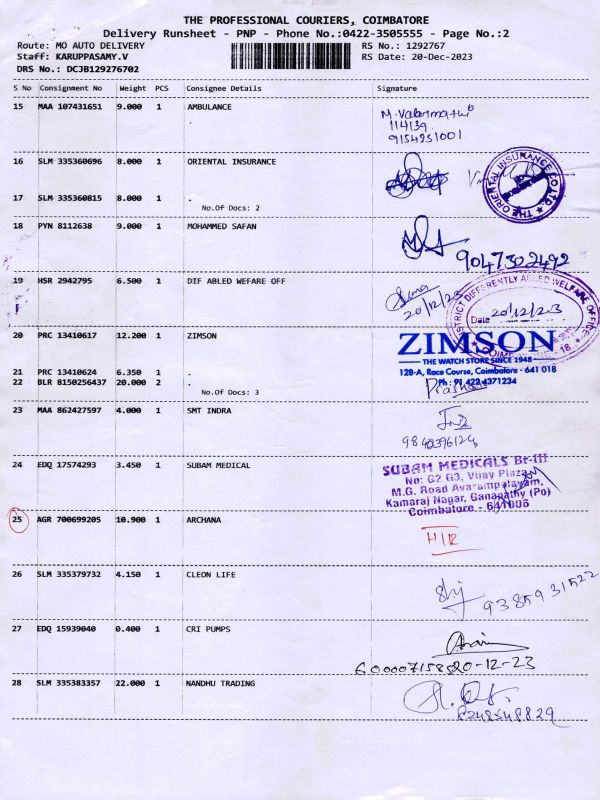 THE PROFESSIONAL COURIERS, COIMBATORE
Delivery Runsheet - PNP - Phone No.:0422-3505555 - Page No.:2
Route: MO AUTO DELIVERY RS No.: 1292767
Staff: KARUPPASAMY.V RS Date: 20-Dec-2023
DRS No.: DCJB129276702
S No Consignment No Weight PCS Consignee Details Signature
15 MAA 107431651 9.000 1 AMBULANCE
.
114139
9154251001
16 SLM 335360696 8.000 1 ORIENTAL INSURANCE
THE ORIENTAL INSURANCE CO. LTD.
17 SLM 335360815 8.000 1 .
No.Of Docs: 2
18 PYN 8112638 9.000 1 MOHAMMED SAFAN
9047302492
19 HSR 2942795 6.500 1 DIF ABLED WEFARE OFF
20/12/23
DIFFERENTLY ABLED WELFARE OFFICE
Date 20/12/23
20 PRC 13410617 12.200 1 ZIMSON
ZIMSON
THE WATCH STORE SINCE 1948
128-A, Race Course, Coimbatore - 641 018
Ph: 91 422 4371234
21 PRC 13410624 6.350 1 .
22 BLR 8150256437 20.000 2 .
No.Of Docs: 3
23 MAA 862427597 4.000 1 SMT INDRA
9840396124
24 EDQ 17574293 3.450 1 SUBAM MEDICAL
SUBAM MEDICALS Br-III
No: G2 G3, Vijay Plaza,
M.G. Road Avarampalayam,
Kamaraj Nagar, Ganapathy (Po)
Coimbatore - 641006
25 AGR 700699205 10.900 1 ARCHANA
H/R
26 SLM 335379732 4.150 1 CLEON LIFE
9385931522
27 EDQ 15939040 0.400 1 CRI PUMPS
20-12-23
28 SLM 335383357 22.000 1 NANDHU TRADING
8248548829